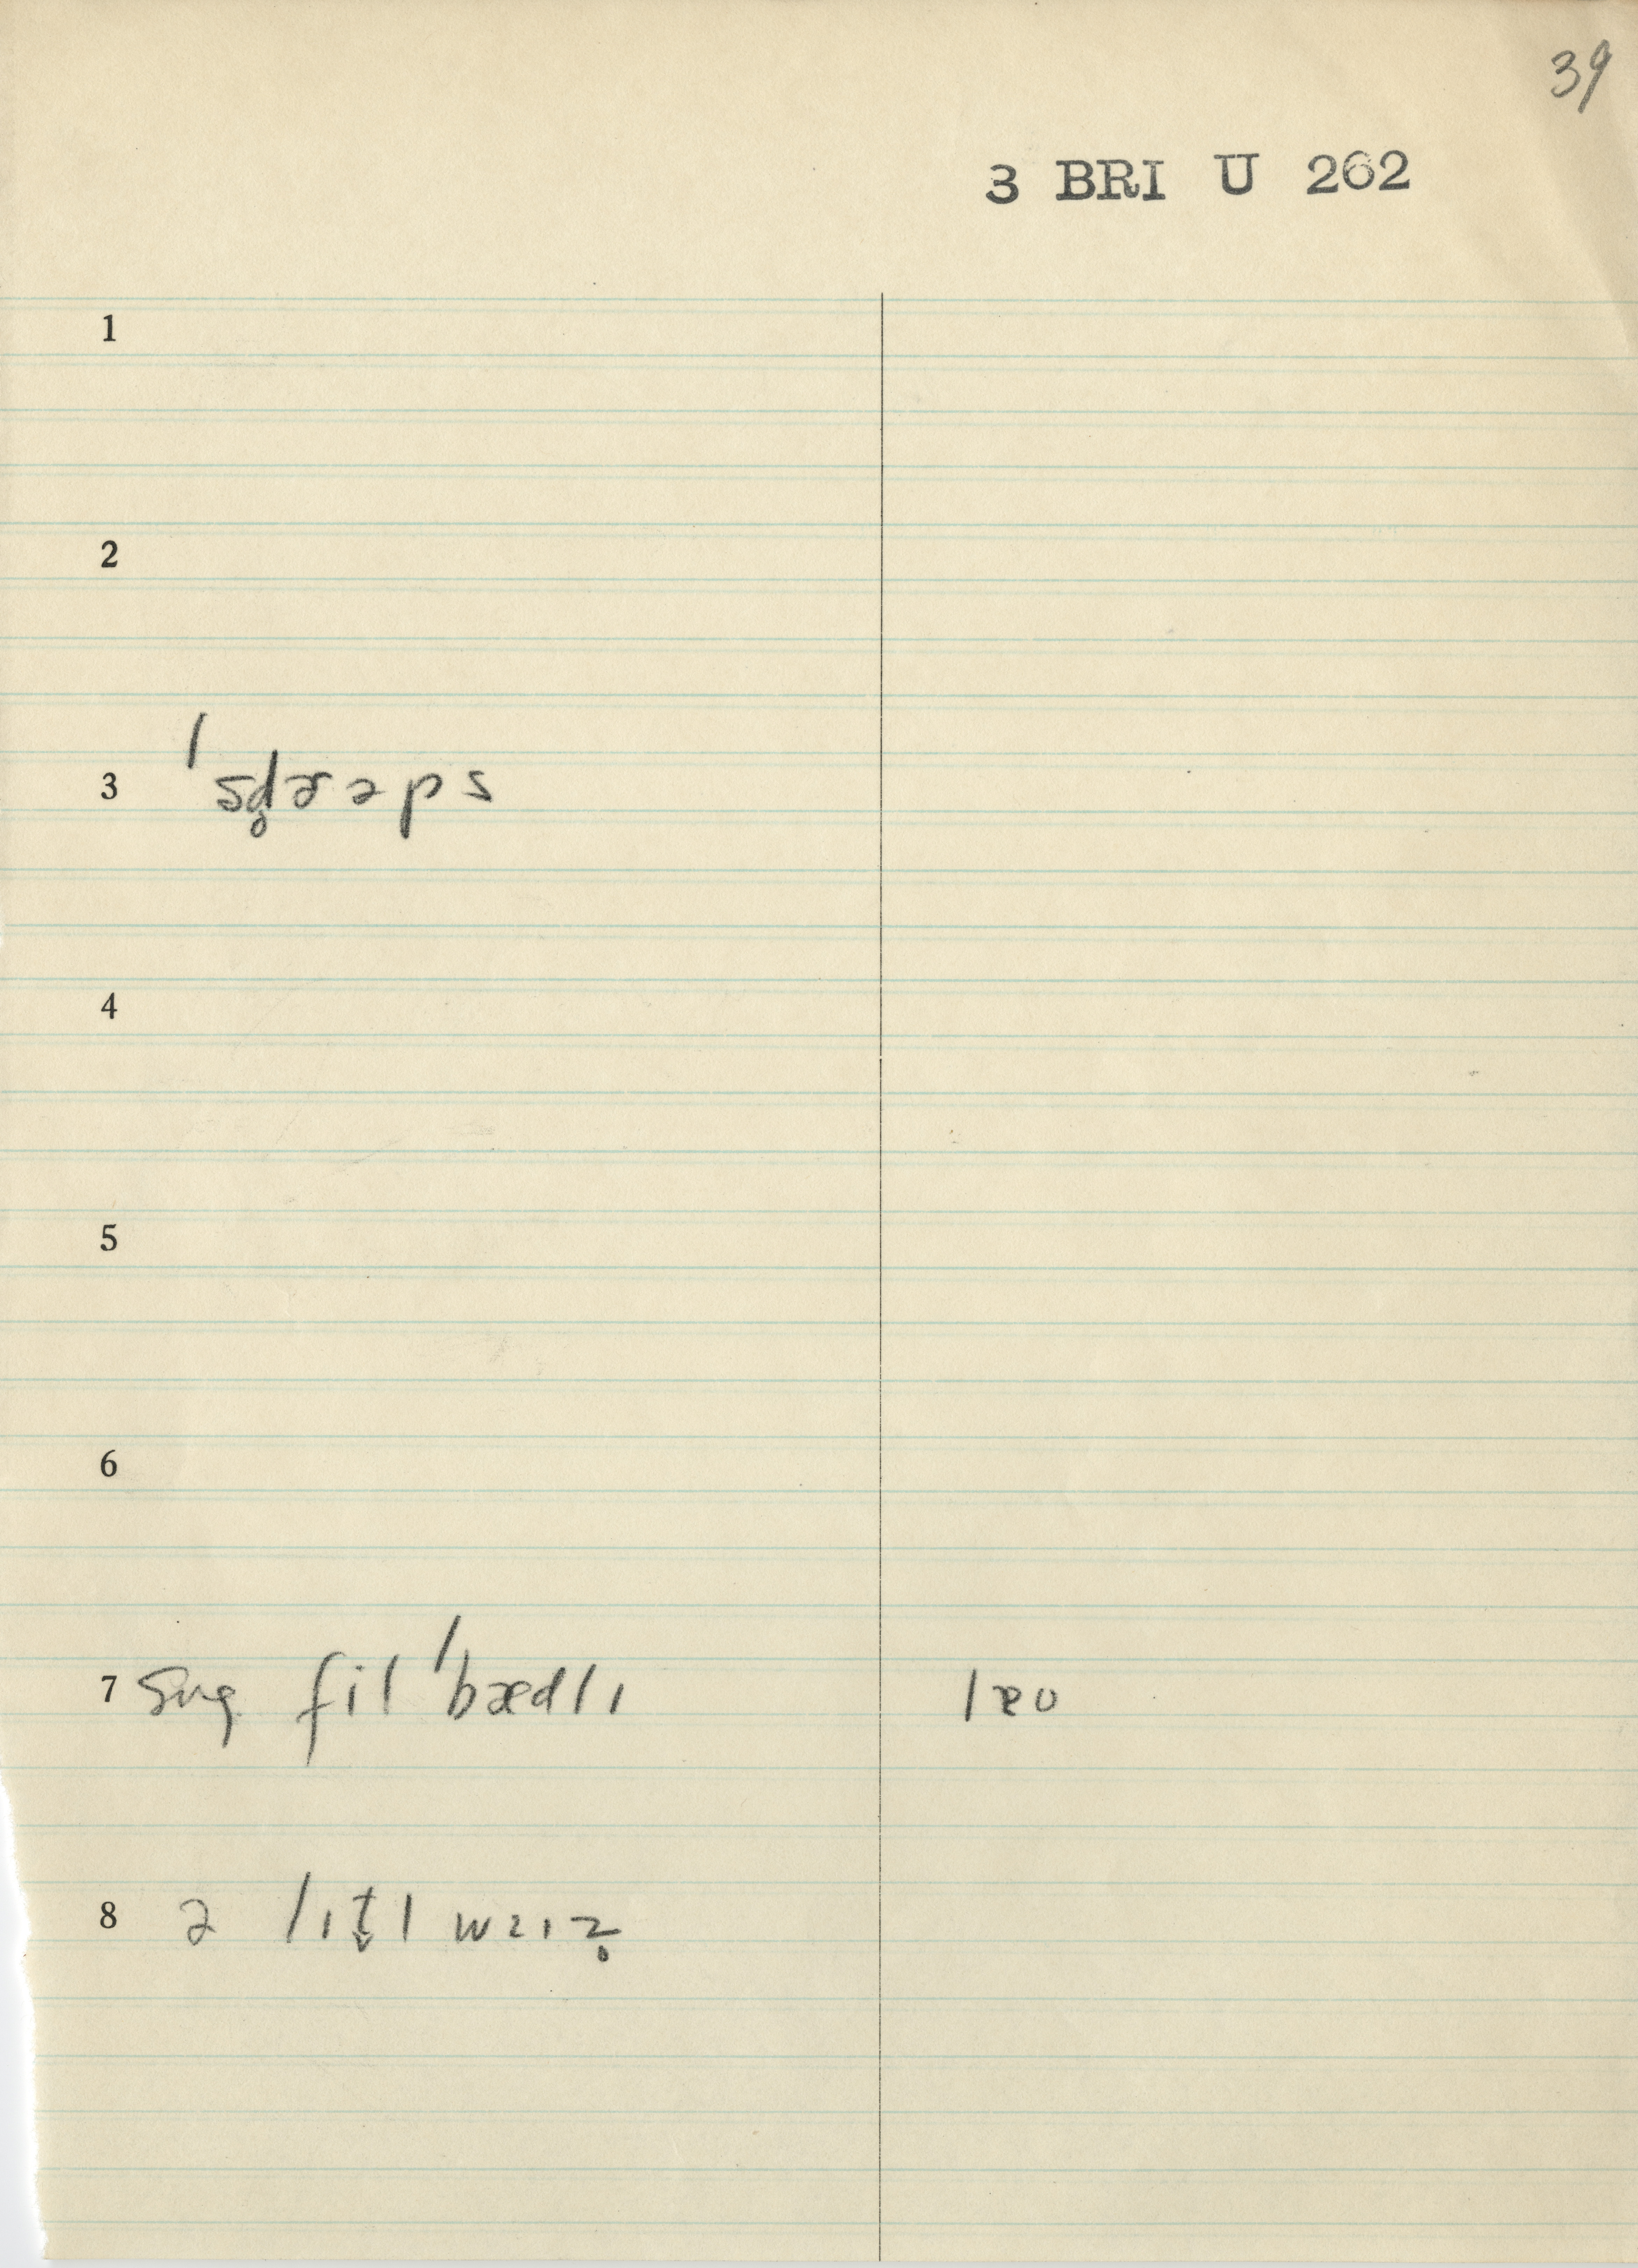 39
3 BRI U 262
1
2
3 ˈsd̥ɚəps
4
5
6
7 fil ˈbædlɪ
8 ə lɪt̬l wɜɪz̥